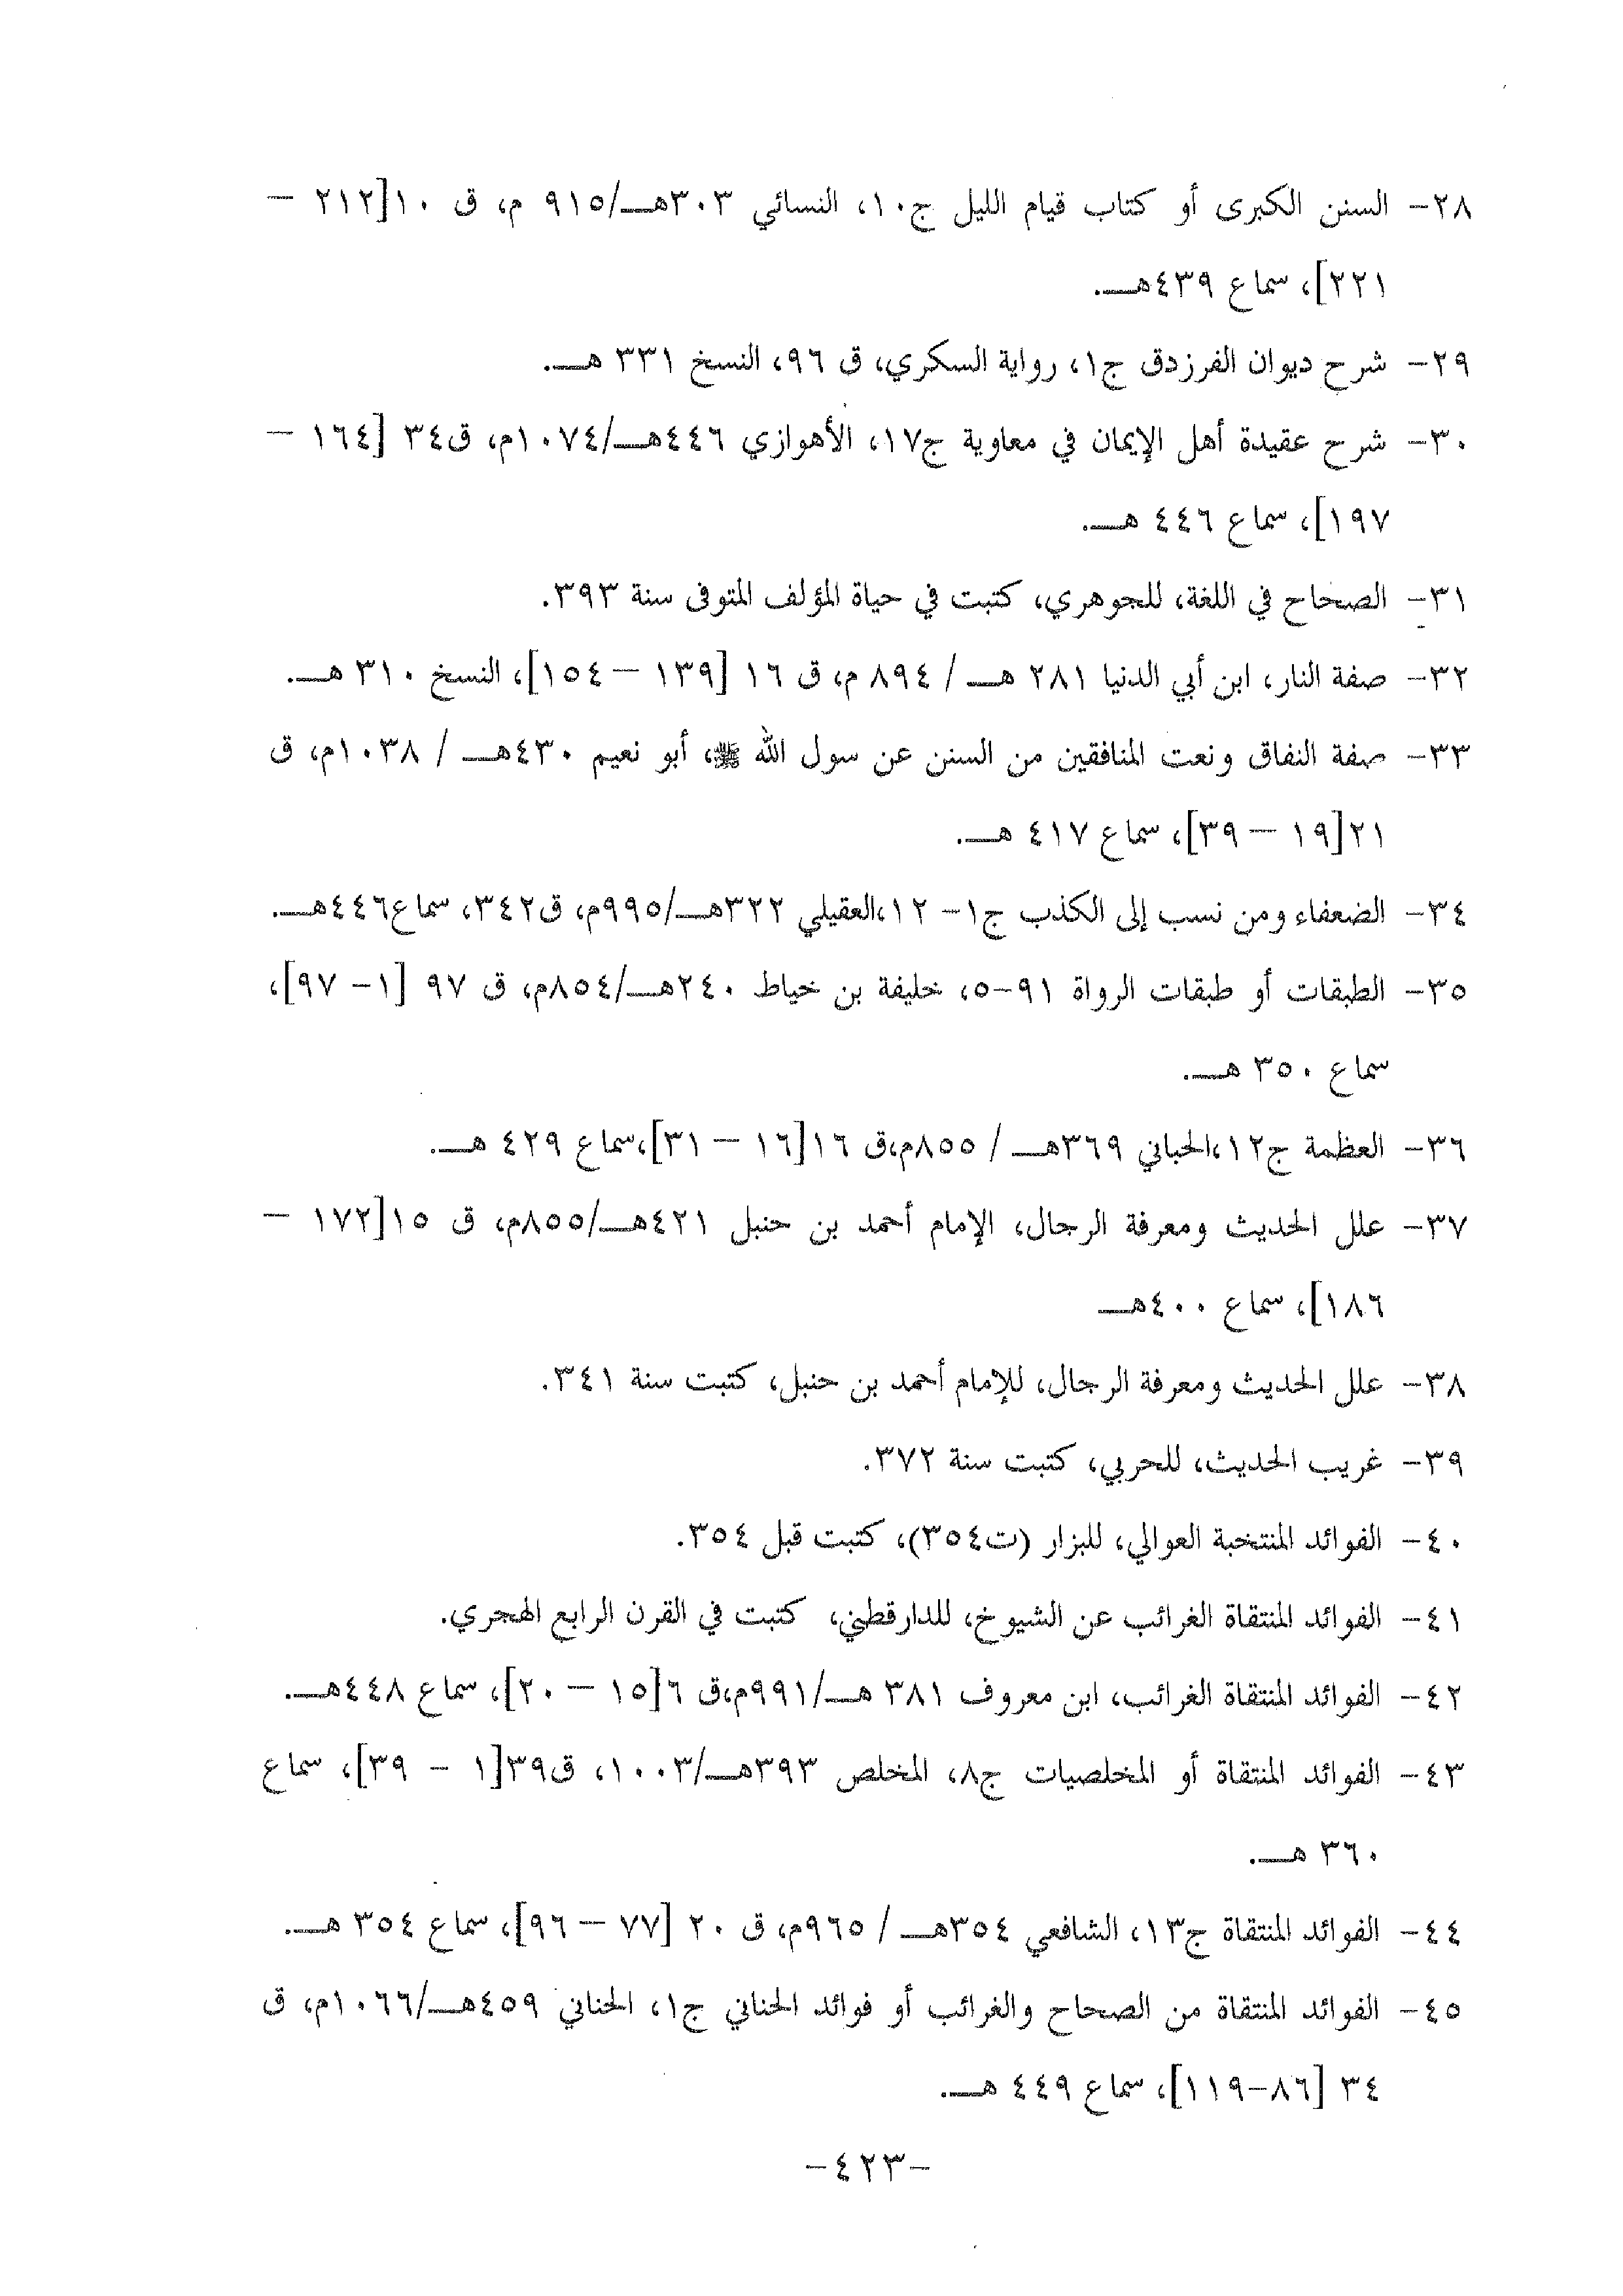 ٢٨- السنن الكبرى أو كتاب قيام الليل ج١٠، النسائي ٣٠٣هـ/٩١٥ م، ق ١٠[٢١٢ –
٢٢١]، سماع ٤٣٩هـ.
٢٩- شرح ديوان الفرزدق ج١، رواية السكري، ق ٩٦، النسخ ٣٣١ هـ.
٣٠- شرح عقيدة أهل الإيمان في معاوية ج١٧، الأهوازي ٤٤٦هـ/١٠٧٤م، ق٣٤ [١٦٤ –
١٩٧]، سماع ٤٤٦ هـ.
٣١- الصحاح في اللغة، للجوهري، كتبت في حياة المؤلف المتوفى سنة ٣٩٣.
٣٢- صفة النار، ابن أبي الدنيا ٢٨١ هـ / ٨٩٤ م، ق ١٦ [١٣٩ – ١٥٤]، النسخ ٣١٠ هـ.
٣٣- صفة النفاق ونعت المنافقين من السنن عن سول الله ﷺ، أبو نعيم ٤٣٠هـ / ١٠٣٨م، ق
٢١[١٩ – ٣٩]، سماع ٤١٧ هـ.
٣٤- الضعفاء ومن نسب إلى الكذب ج١- ١٢،العقيلي ٣٢٢هـ/٩٩٥م، ق٣٤٢، سماع٤٤٦هـ.
٣٥- الطبقات أو طبقات الرواة ٩١-٥، خليفة بن خياط ٢٤٠هـ/٨٥٤م، ق ٩٧ [١- ٩٧]،
سماع ٣٥٠ هـ.
٣٦- العظمة ج١٢،الحباني ٣٦٩هـ / ٨٥٥م،ق ١٦[١٦ – ٣١]،سماع ٤٢٩ هـ.
٣٧- علل الحديث ومعرفة الرجال، الإمام أحمد بن حنبل ٤٢١هـ/٨٥٥م، ق ١٥[١٧٢ –
١٨٦]، سماع ٤٠٠هـ
٣٨- علل الحديث ومعرفة الرجال، للإمام أحمد بن حنبل، كتبت سنة ٣٤١.
٣٩- غريب الحديث، للحربي، كتبت سنة ٣٧٢.
٤٠- الفوائد المنتخبة العوالي، للبزار (ت٣٥٤)، كتبت قبل ٣٥٤.
٤١- الفوائد المنتقاة الغرائب عن الشيوخ، للدارقطني، كتبت في القرن الرابع الهجري.
٤٢- الفوائد المنتقاة الغرائب، ابن معروف ٣٨١ هـ/٩٩١م،ق ٦[١٥ – ٢٠]، سماع ٤٤٨هـ.
٤٣- الفوائد المنتقاة أو المخلصيات ج٨، المخلص ٣٩٣هـ/١٠٠٣، ق٣٩[١ - ٣٩]، سماع
٣٦٠ هـ.
٤٤- الفوائد المنتقاة ج١٣، الشافعي ٣٥٤هـ / ٩٦٥م، ق ٢٠ [٧٧ – ٩٦]، سماع ٣٥٤ هـ.
٤٥- الفوائد المنتقاة من الصحاح والغرائب أو فوائد الحناني ج١، الحناني ٤٥٩هـ/١٠٦٦م، ق
٣٤ [٨٦-١١٩]، سماع ٤٤٩ هـ.
-٤٢٣-